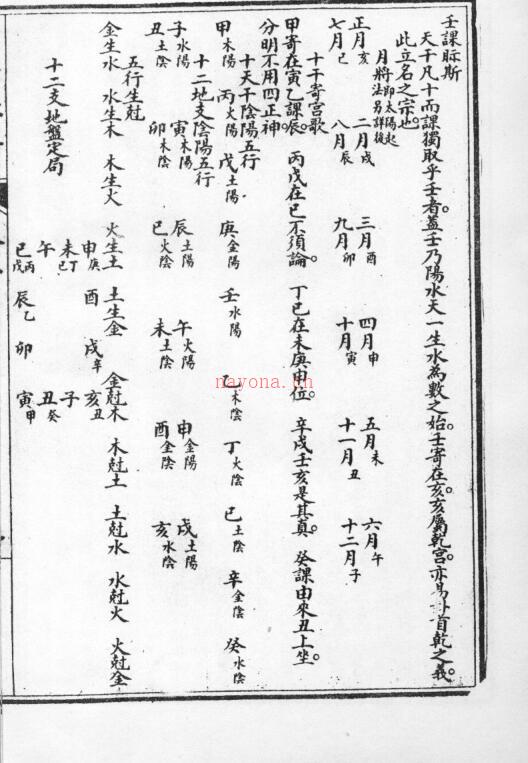 壬課眎斯
天干凡十而課獨取乎壬者蓋壬乃陽水天一生水為數之始。壬寄在亥。亥屬乾宮。亦易卦首乾之義。
此立名之宗也
月將即太陽起法另詳後
正月亥　二月戌　三月酉　四月申　五月未　六月午
七月巳　八月辰　九月卯　十月寅　十一月丑　十二月子
十干寄宮歌
甲寄在寅乙課辰。丙戊在巳不須論。丁巳在未庚申位。辛戌壬亥是其真。癸課由來丑上坐
分明不用四正神。
十天干陰陽五行
甲木陽　丙火陽　戊土陽　庚金陽　壬水陽　乙木陰　丁火陰　己土陰　辛金陰　癸水陰
十二地支陰陽五行
子水陽　寅木陽　辰土陽　午火陽　申金陽　戌土陽
丑土陰　卯木陰　巳火陰　未土陰　酉金陰　亥水陰
五行生尅
金生水　水生木　木生火　火生土　土生金　金尅木　木尅土　土尅水　水尅火　火尅金
十二支地盤定局
申庚　酉　戌辛　亥丑
未丁已　子
午　丑癸
巳丙戊　辰乙　卯　寅甲
nayona.cn